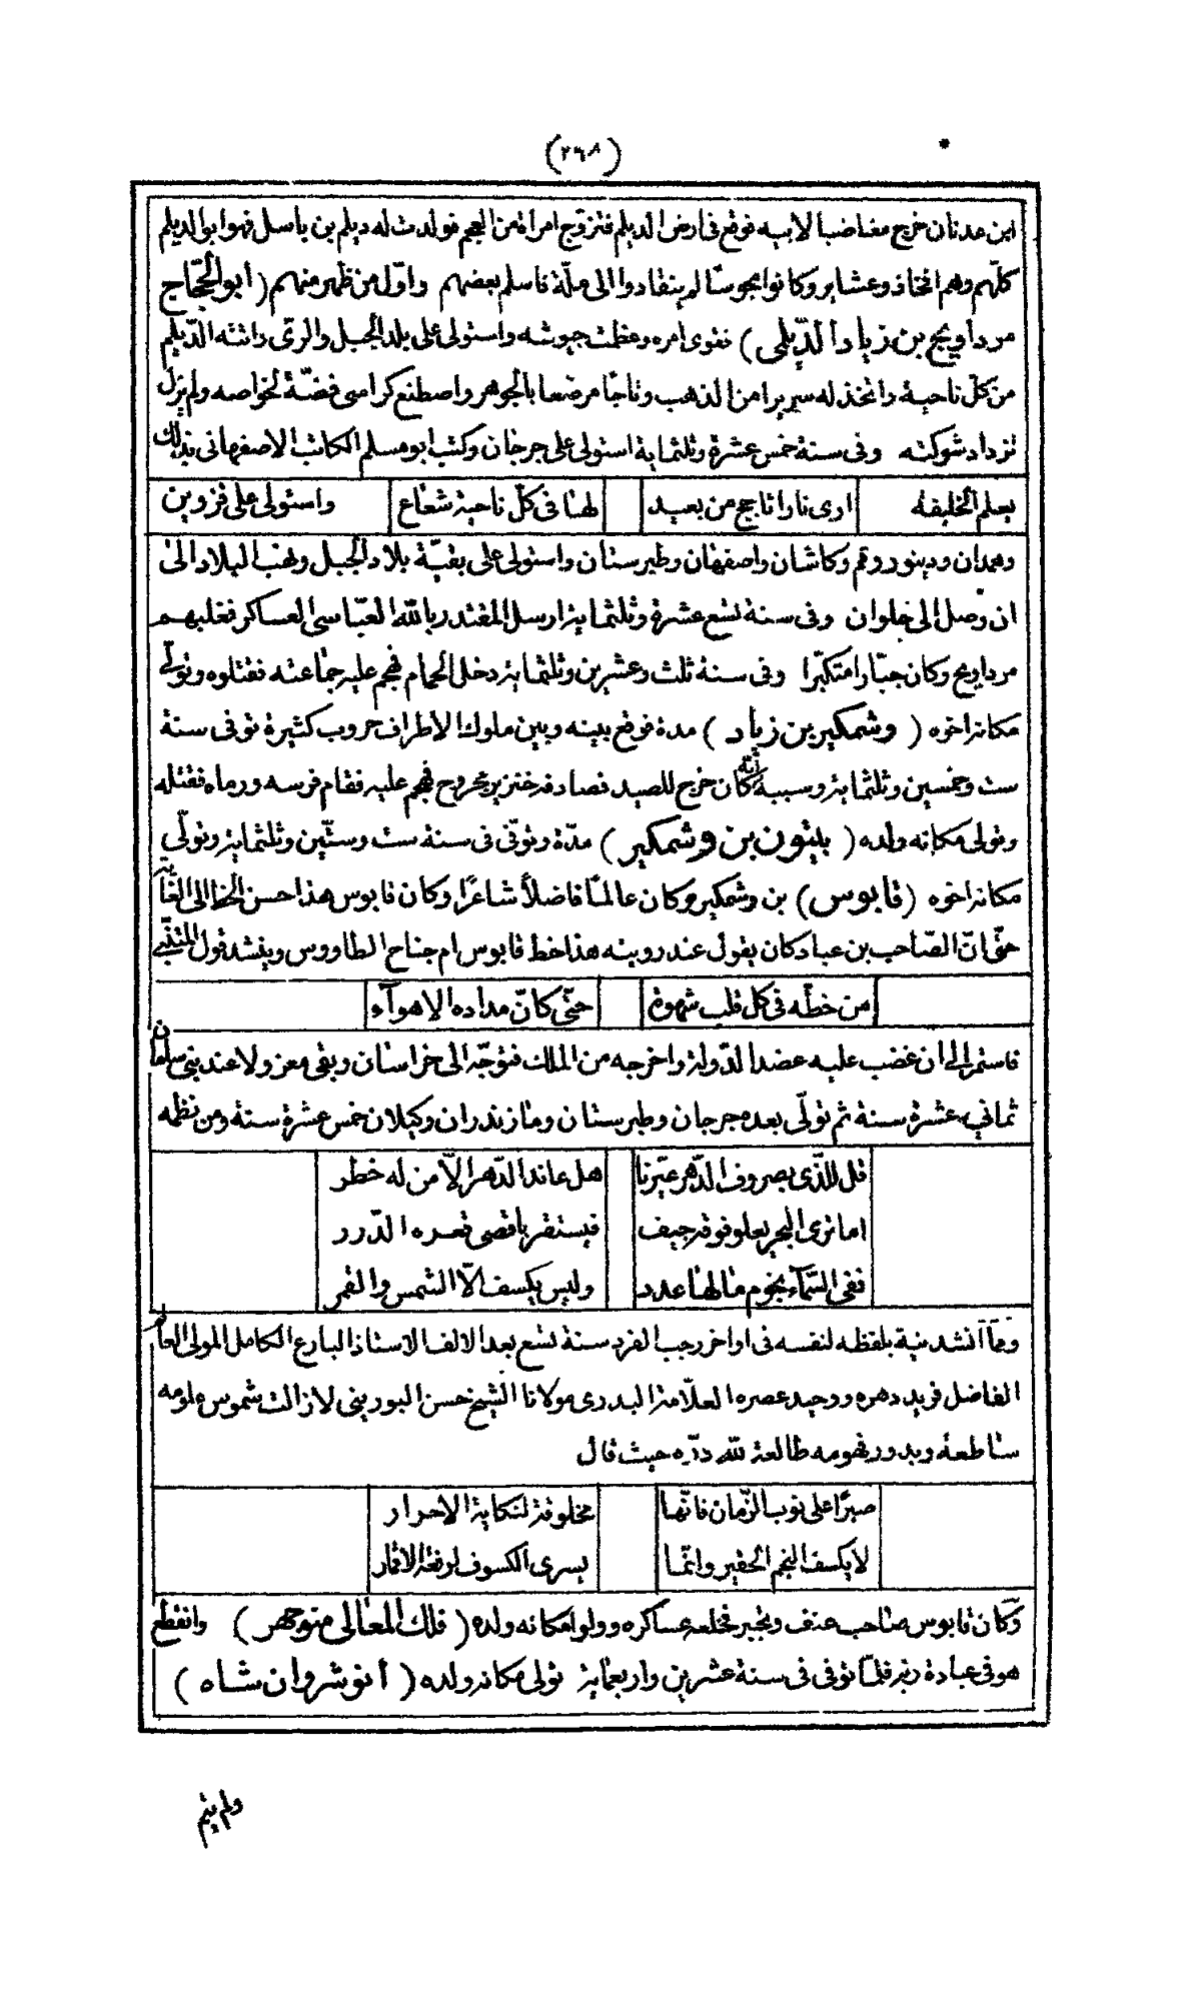 (٢٦٨)
ابن عدنان خرج مغاضبا لابيه فوقع فى ارض الديلم فتزوج امراة من العجم فولدت له ديلم بن باسل فهوا بو الديلم
كلّهم وهم افخاذ وعشاير وكانوا مجوسًا لم ينقادوا الى ملّة فاسلم بعضهم واوّل من ظهر منهم (أبو الحجّاج
مرداويج بن زياد الدّيلمى) فقوى امره وعظمت جيوشه واستولى على بلد الجبل والرّى واتته الدّيلم
من كلّ ناحية واتخذ له سريرا من الذهب وتاجًا مرصعا بالجوهر واصطنع كراسى فضّة لخواصه ولم يزل
تزداد شوكته وفى سنة خمس عشرة وثلثماية استولى على جرجان وكتب ابو مسلم الكاتب الاصفهانى بذلك
يعلم الخليفه ارى نارا تاجج من بعيد لها فى كلّ ناحية شعاع واستولى على قزوين
وهمدان ودينور وقم وكاشان واصفهان وطبرستان واستولى على بقيّة بلاد الجبل ونهب البلاد الى
ان وصل الى حلوان وفى سنة تسع عشرة وثلثماية ارسل المقتدر بالله العبّاسى العساكر فغلبهم
مرداويج وكان جبّارا متكبّرا وفى سنة ثلث وعشرين وثلثماية دخل الحمام فهجم عليه جماعته فقتلوه وتولّى
مكانه اخوه (وشمكير بن زياد) مدة فوقع بينه وبين ملوك الاطراف حروب كثيرة توفى سنة
ست وخمسين وثلثماية وسببه أنّه كان خرج للصيد فصادفه خنزير مجروح فهجم عليه فقام فرسه ورماه فقتله
وتولى مكانه ولده (بيثون بن وشمكير) مدّة وتوفّى فى سنة ست وستّين وثلثماية وتولّى
مكانه اخوه (قابوس) بن وشمكير وكان عالمًا فاضلًا شاعرًا وكان قابوس هذا حسن الخط الى الغاية
حتى انّ الصّاحب بن عباد كان يقول عند رويته هذا خط قابوس ام جناح الطاووس وينشد قول المتنبّى
من خطّه فى كل قلب شهوة حتّى كانّ مداده الاهوآء
فاستمر الى ان غضب عليه عضد الدّولة واخرجه من الملك فتوجّه الى خراسان وبقى معزولا عند بنى سامان
ثمانى عشرة سنة ثم تولّى بعده جرجان وطبرستان ومازندران وكيلان خمس عشرة سنة ومن نظمه
قل للذّى بصروف الدّهر عيّرنا هل عاند الدّهر الاّ من له خطر
اما ترى البحر يعلو فوقه جيف فيستقر باقصى قعره الدّرر
ففى السّمآء نجوم ما لها عدد وليس يكسف الاّ الشمس والقمر
وممّا انشدنيه بلفظه لنفسه فى اواخر رجب الفرد سنة تسع بعد الالف الاستاذ البارع الكامل المولى العالم
الفاضل فريد دهره ووحيد عصره العلاّمة البدرى مولانا الشيخ حسن البورينى لا زالت شموس علومه
ساطعة وبدور فهومه طالعة لله درّه حيث قال
صبرًا على نوب الزّمان فانّها مخلوقة لنكاية الاحرار
لا يكسف النجم الحقير وانّما يسرى الكسوف لرفعة الاقمار
وكان قابوس صاحب عنف وتجبر فخلعه عساكره وولوا مكانه ولده (فلك المعالى منوجهر) وانقطع
هو فى عبادة ربّه فلمّا توفى فى سنة عشرين واربعماية تولى مكانه ولده (أنوشروان شاه)
ولم يتم